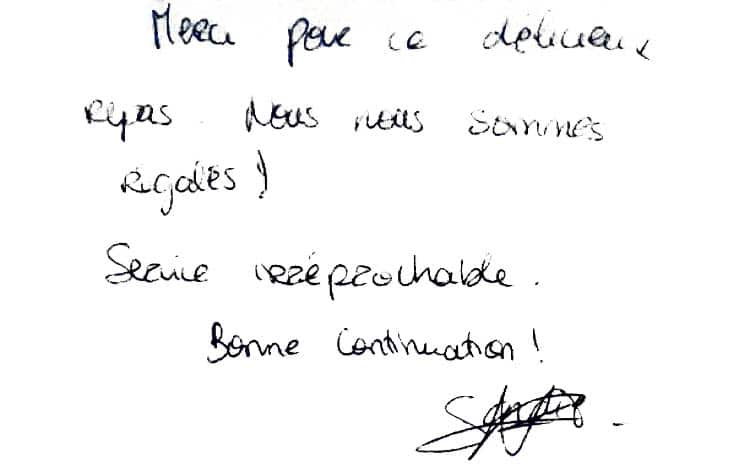 Merci pour ce délicieux
repas. Nous nous sommes
régalés !
Service irréprochable.
Bonne Continuation !